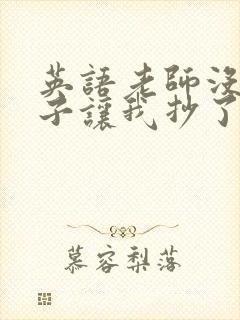 英語老師沒
子讓我抄了
慕容梨落